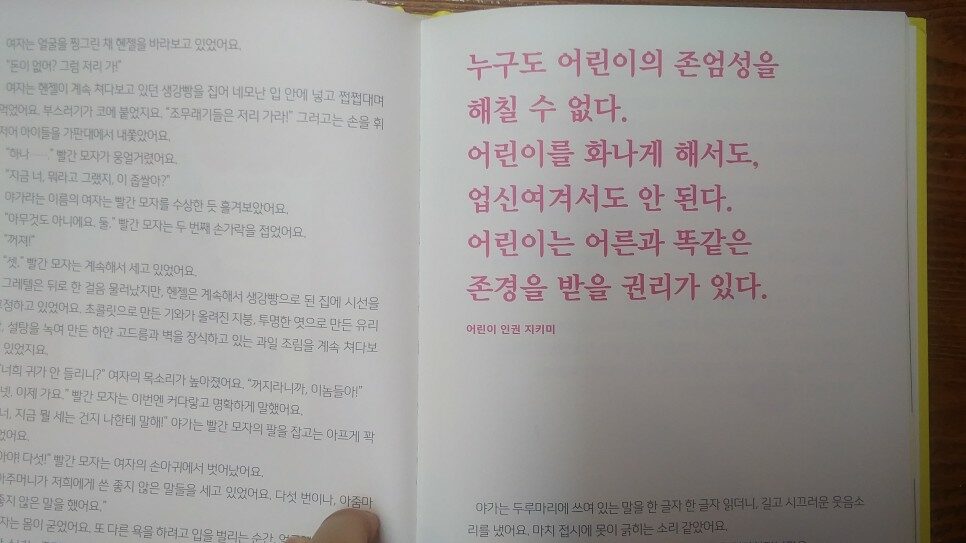 여자는 얼굴을 찡그린 채 헨젤을 바라보고 있었어요.
"돈이 없어? 그럼 저리 가!"
여자는 헨젤이 계속 쳐다보고 있던 생강빵을 집어 네모난 입 안에 넣고 쩝쩝대며
먹었어요. 부스러기가 코에 붙었지요. "조무래기들은 저리 가라!" 그러고는 손을 휘
저어 아이들을 가판대에서 내쫓았어요.
"하나……." 빨간 모자가 웅얼거렸어요.
"지금 너, 뭐라고 그랬지, 이 좁쌀아?"
야가라는 이름의 여자는 빨간 모자를 수상한 듯 흘겨보았어요.
"아무것도 아니에요. 둘." 빨간 모자는 두 번째 손가락을 접었어요.
"꺼져!"
"셋." 빨간 모자는 계속해서 세고 있었어요.
그레텔은 뒤로 한 걸음 물러났지만, 헨젤은 계속해서 생강빵으로 된 집에 시선을
고정하고 있었어요. 초콜릿으로 만든 기와가 올려진 지붕, 투명한 엿으로 만든 유리
설탕을 녹여 만든 하얀 고드름과 벽을 장식하고 있는 과일 조림을 계속 쳐다보
있었지요.
"너희 귀가 안 들리니?" 여자의 목소리가 높아졌어요. "꺼지라니까, 이놈들아!"
"넷, 이제 가요." 빨간 모자는 이번엔 커다랗고 명확하게 말했어요.
"너, 지금 뭘 세는 건지 나한테 말해!" 야가는 빨간 모자의 팔을 잡고는 아프게 꽉
었어요.
"아야! 다섯!" 빨간 모자는 여자의 손아귀에서 벗어났어요.
아주머니가 저희에게 쓴 좋지 않은 말들을 세고 있었어요. 다섯 번이나, 아줌마
좋지 않은 말을 했어요."
자는 몸이 굳었어요. 또 다른 욕을 하려고 입을 벌리는 순간,
누구도 어린이의 존엄성을
해칠 수 없다.
어린이를 화나게 해서도,
업신여겨서도 안 된다.
어린이는 어른과 똑같은
존경을 받을 권리가 있다.
어린이 인권 지키미
야가는 두루마리에 쓰여 있는 말을 한 글자 한 글자 읽더니, 길고 시끄러운 웃음소
리를 냈어요. 마치 접시에 못이 긁히는 소리 같았어요.